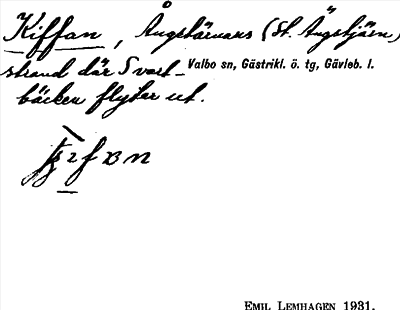 Kiffan, Ångstärnans (St. Ängstjärn)
strand där Svart-
bäcken flyter ut.
Valbo sn, Gästrikl. ö. tg, Gävleb. l.
EMIL LEMHAGEN 1931.